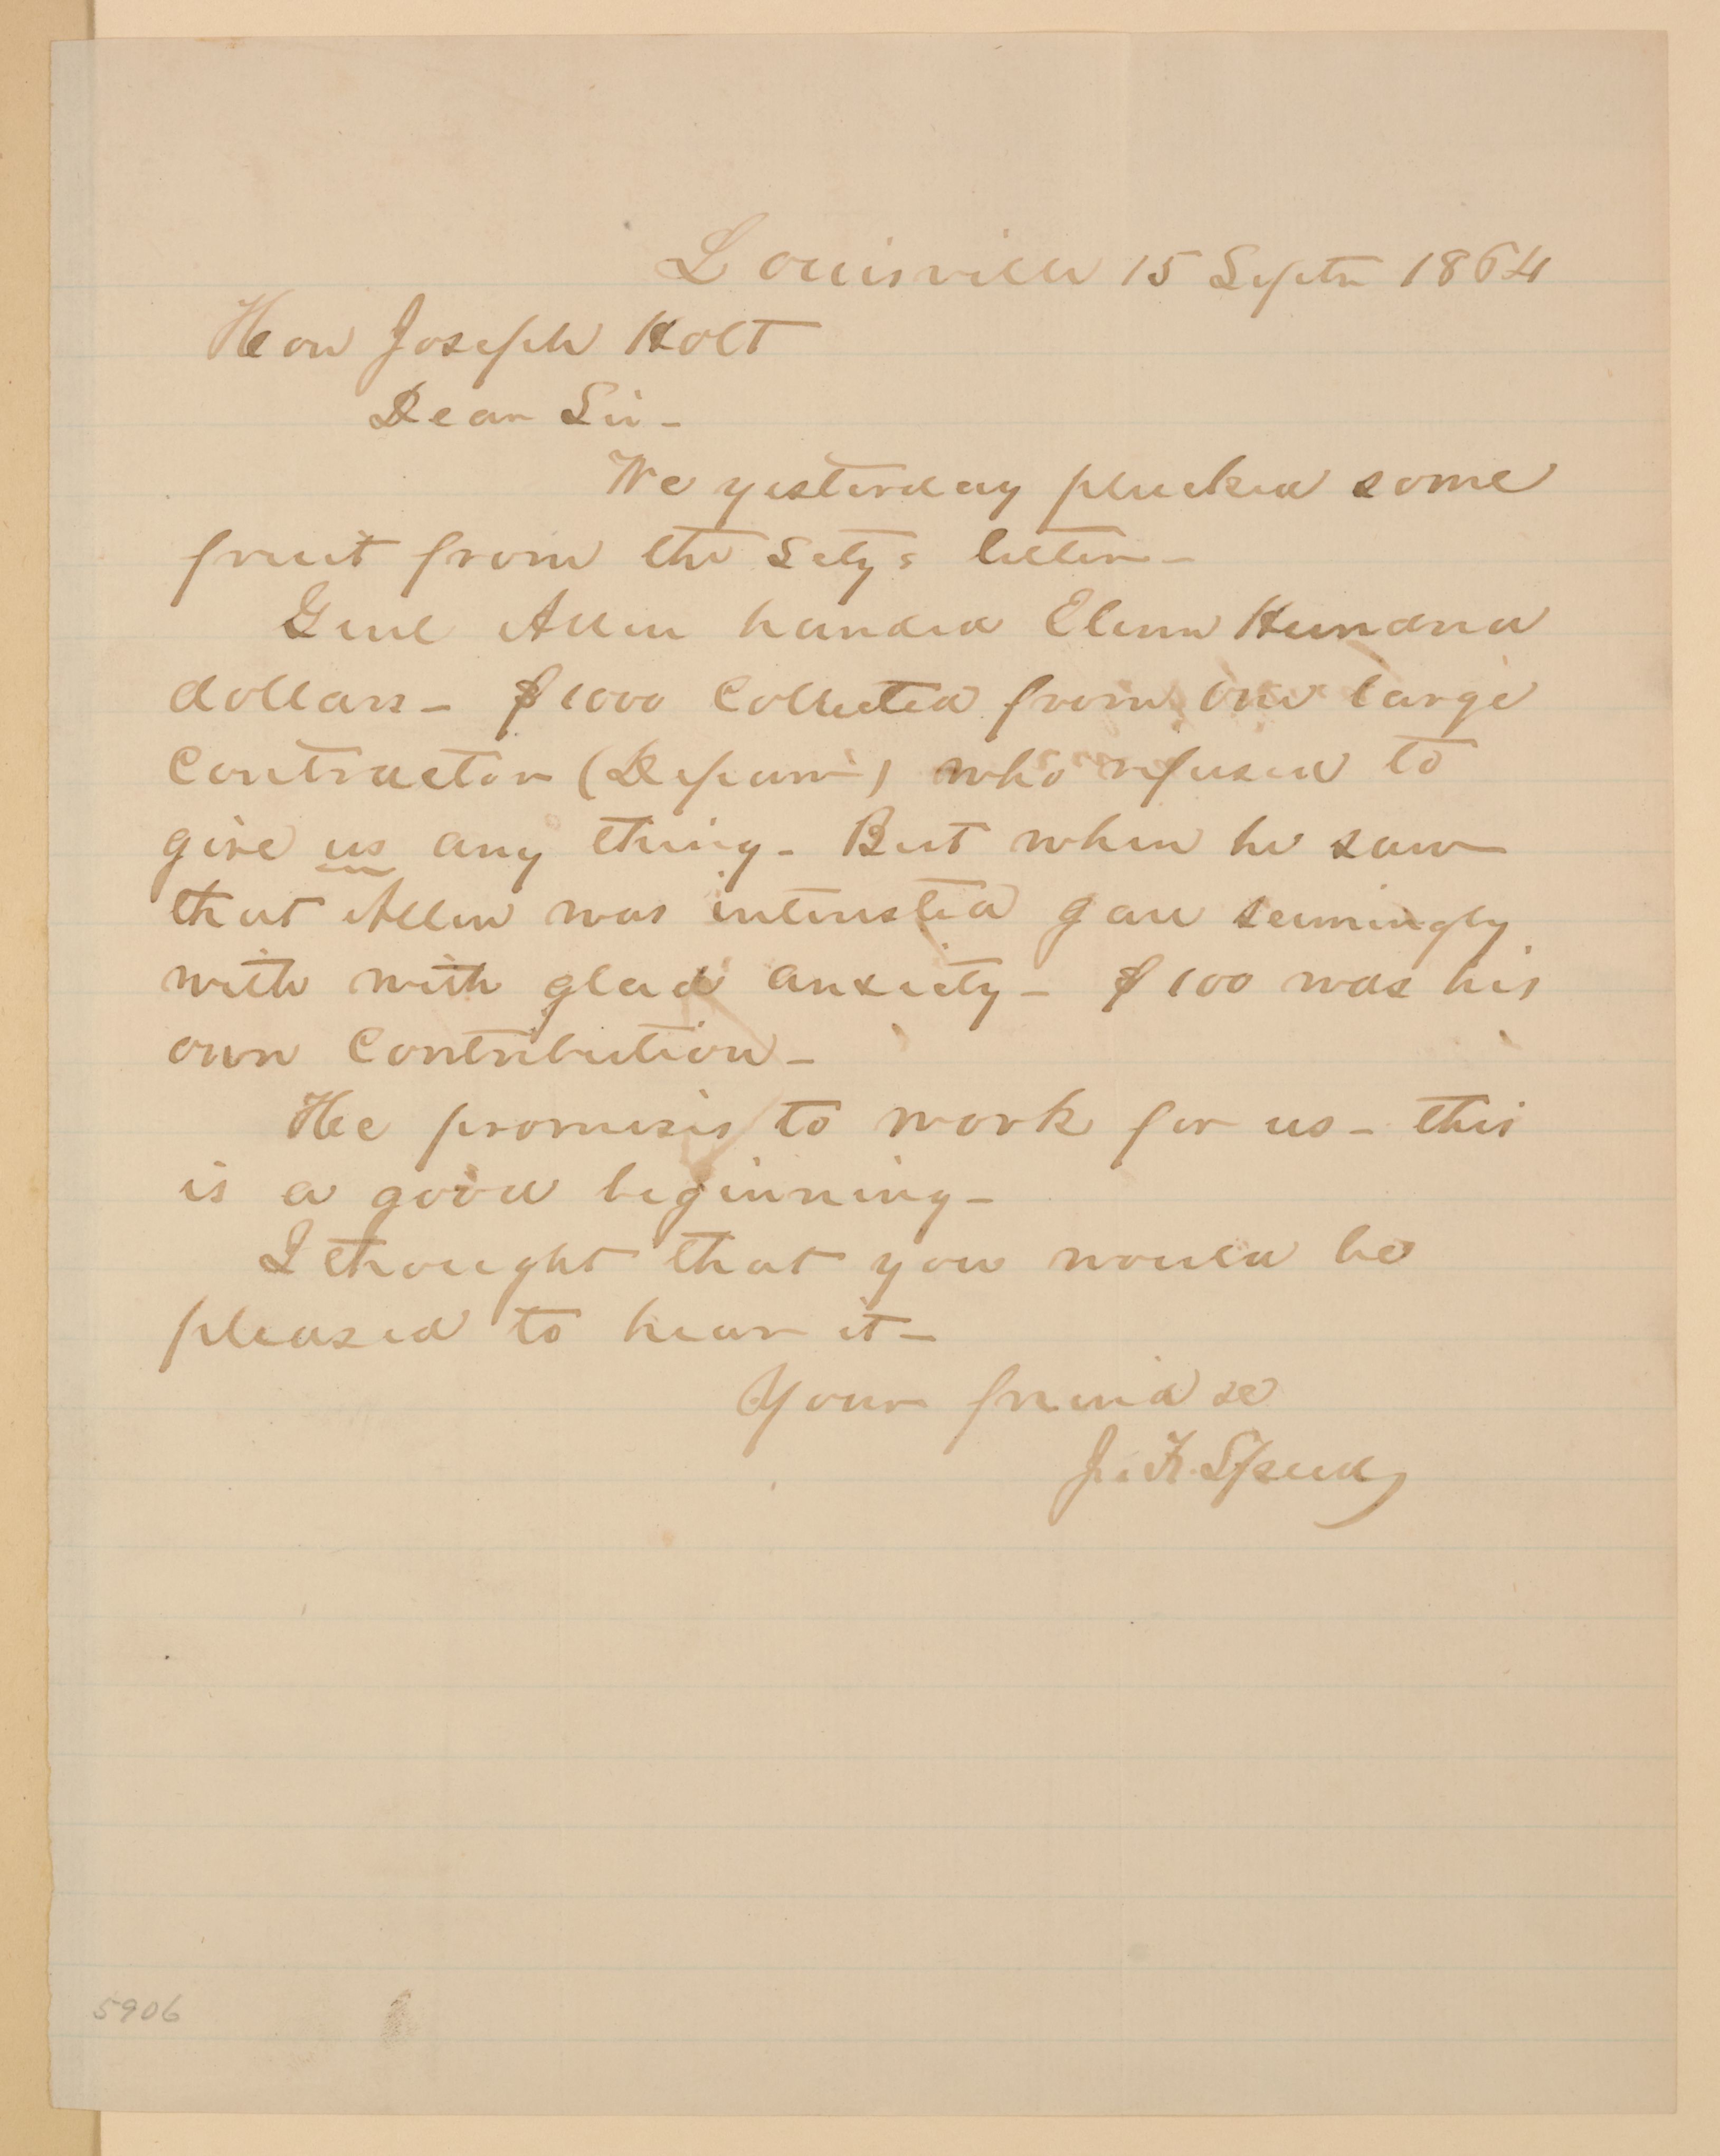 Louisville 15 Septr 1864
Hon Joseph Holt
Dear Sir -
We yesterday plucked some
fruit from the Secty's letter -
Genl Allen handed Eleven Hundred
dollars - $1000 Collected from one large
Contractor ( ) who refused to
give us any thing - But when he saw
that Allen was interested gave seemingly
with with glad anxiety - $100 was his
own Contribution -
He promises to work for us - this
is a good beginning -
I thought that you would be
pleased to hear it -
Your friend &c
J. F. Speed
5906